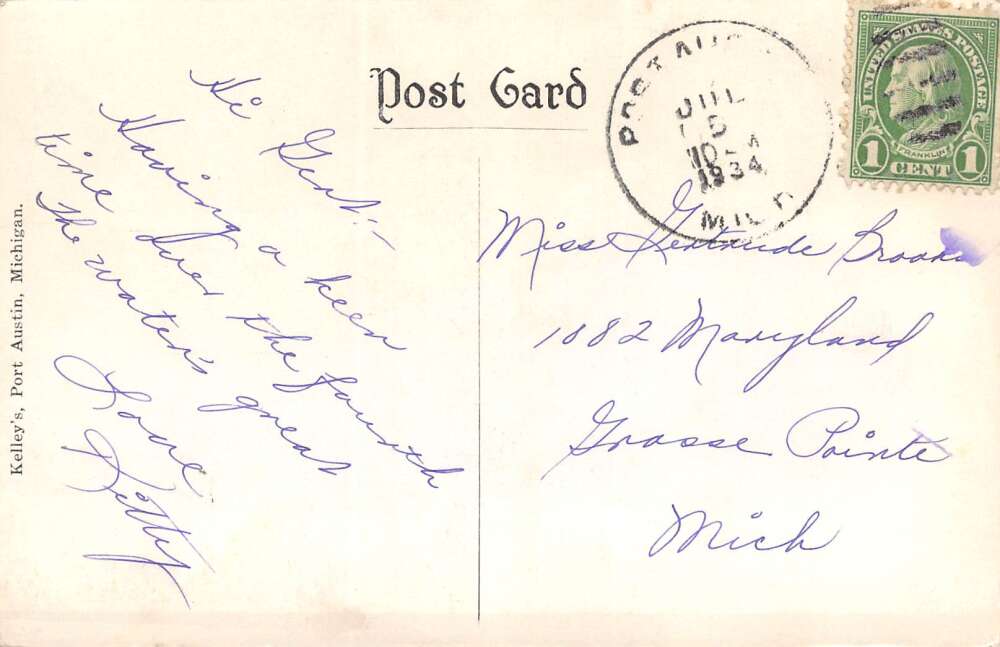 Post Card
POST AUS
JUL
5
10-A
1934
MICH
UNITED STATES POSTAGE
FRANKLIN
1 CENT 1
Hi Gert:-
Having a keen
time over the fourth
The water's great
Love
Ditty
Miss Gertrude Brooks
1082 Maryland
Grosse Pointe
Mich
Kelley's, Port Austin, Michigan.